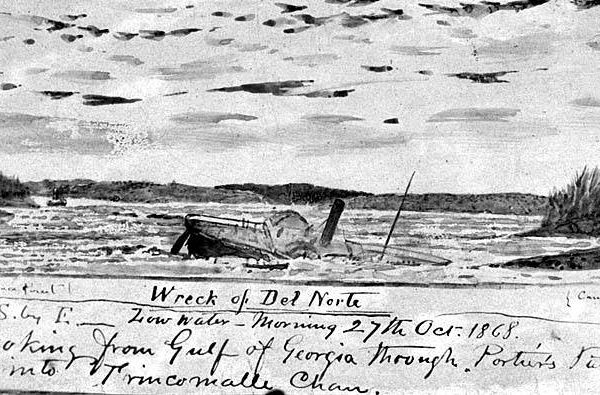 Wreck of Del Norte
S. by E. — Low Water – Morning 27th Oct. 1868.
oking from Gulf of Georgia through Portier's Pa
into Trincomalle Chan.